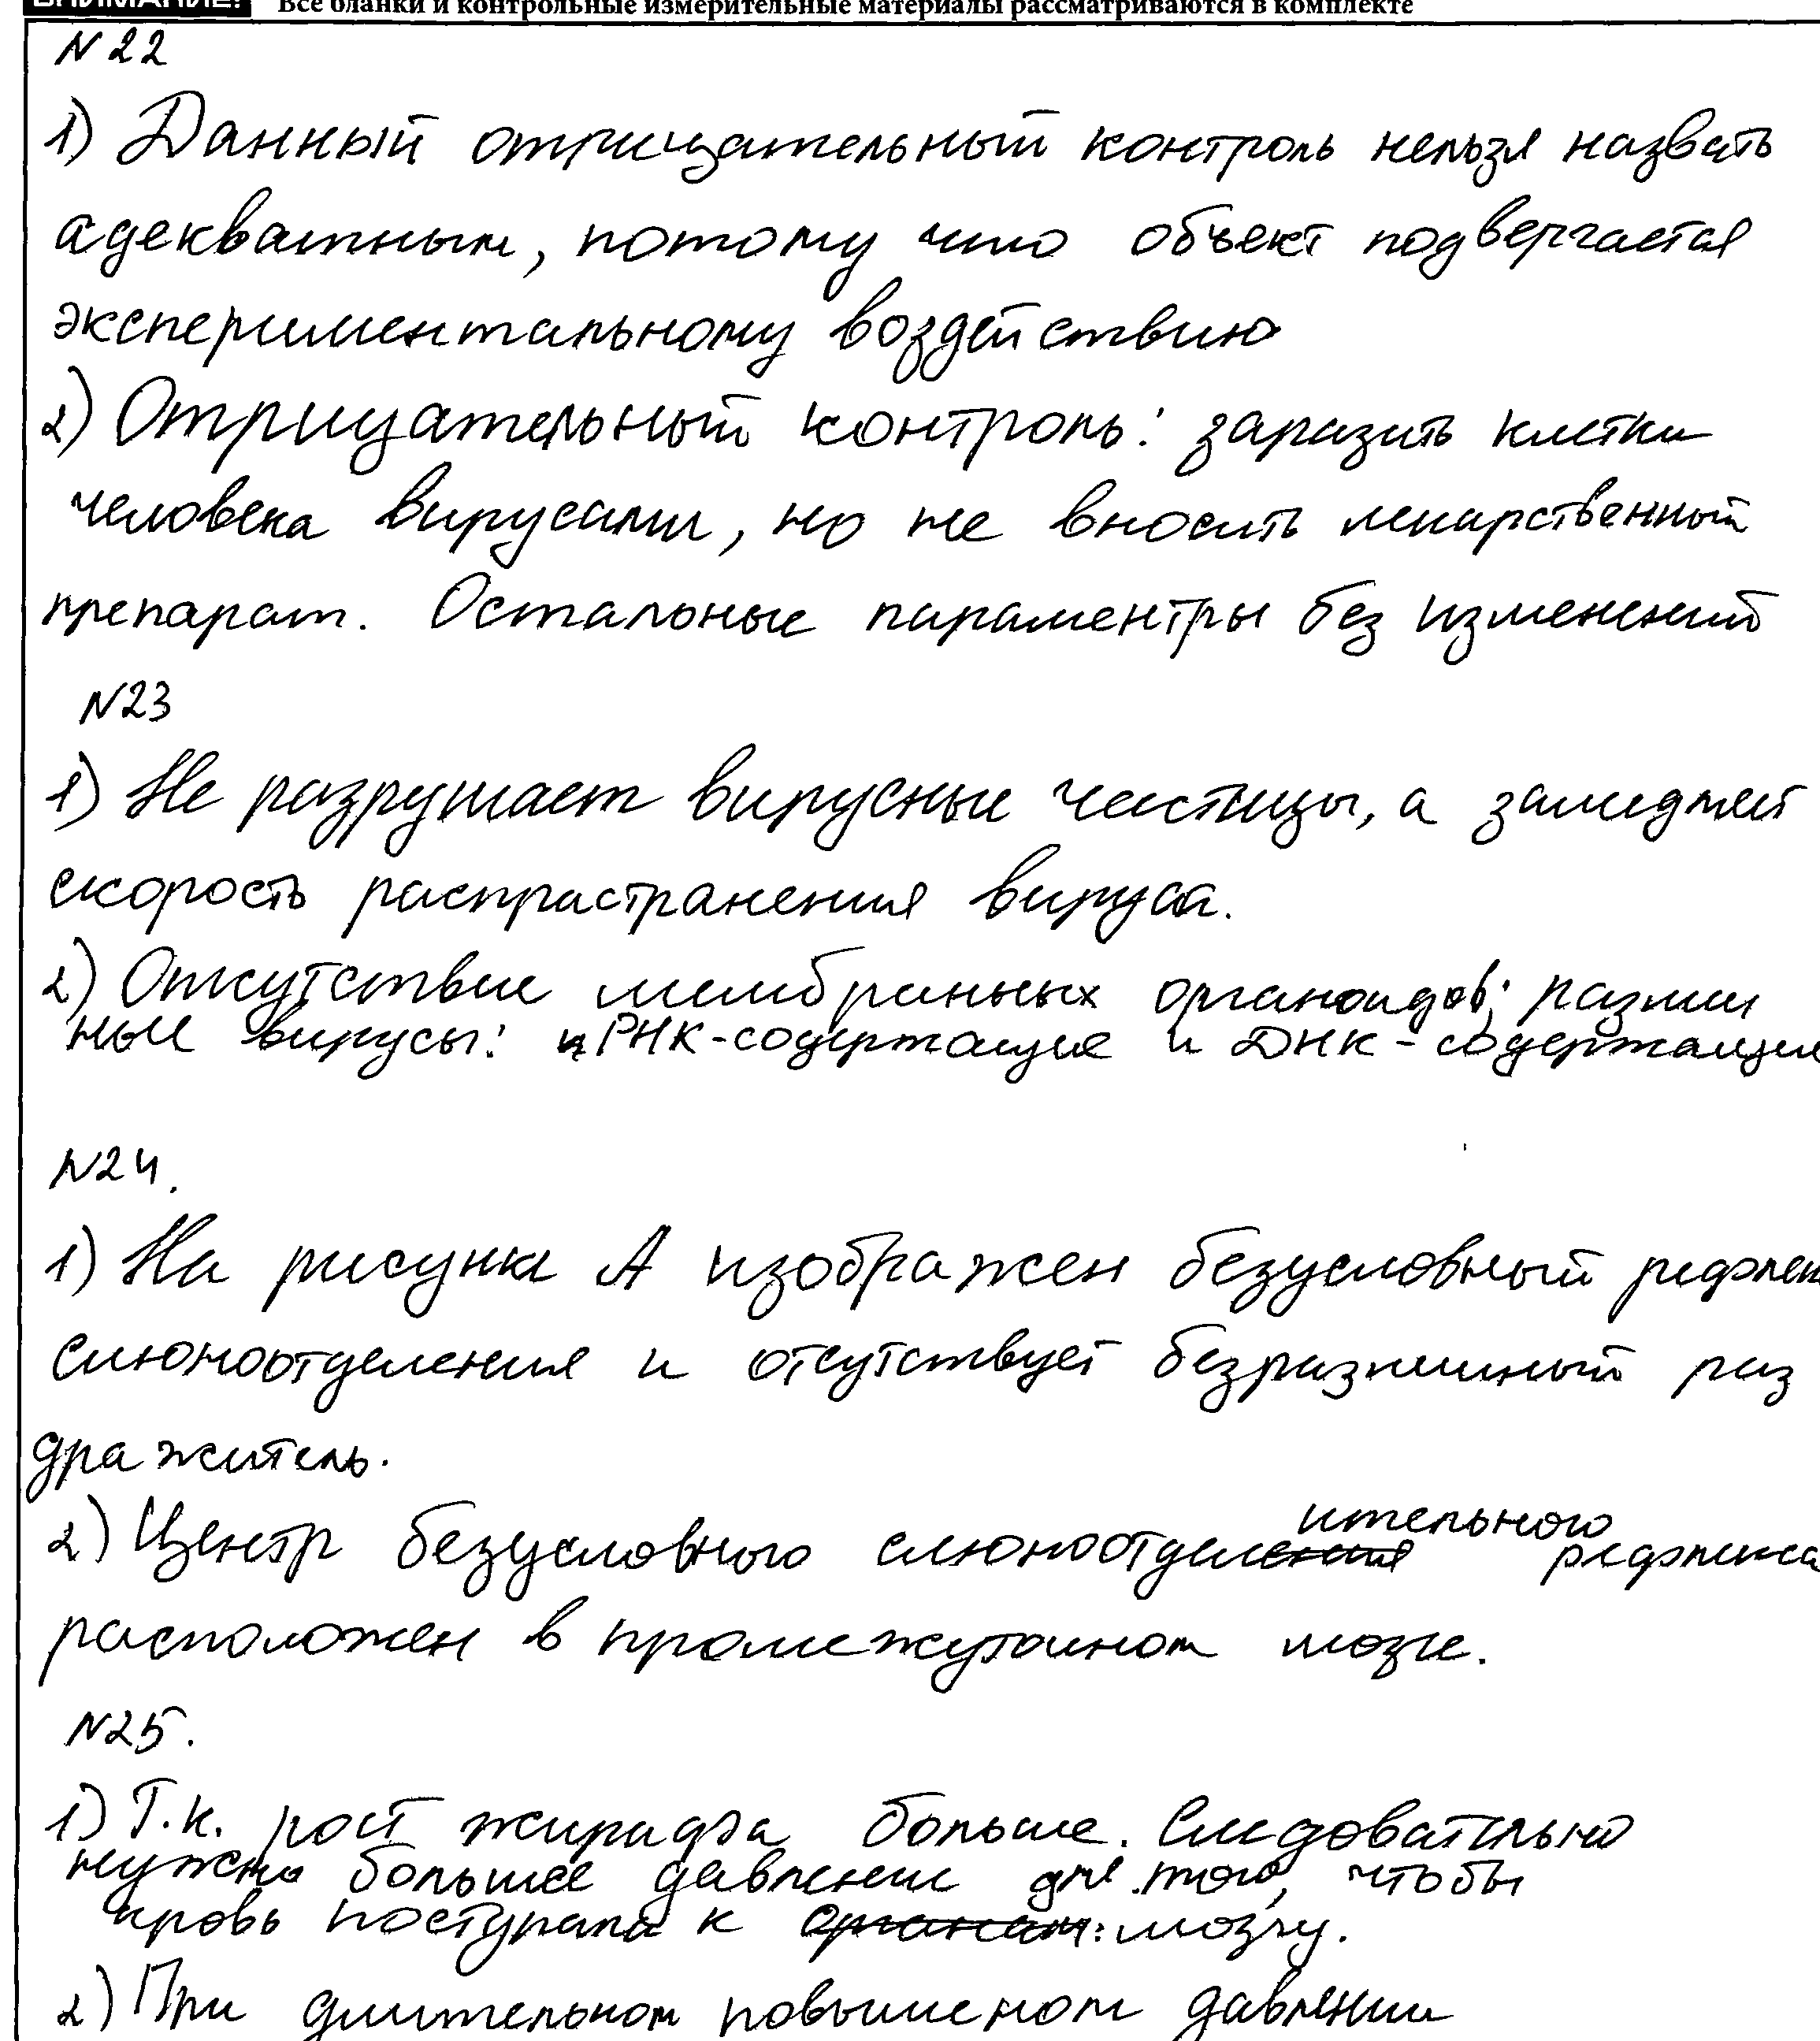 ВНИМАНИЕ! Все бланки и контрольные измерительные материалы рассматриваются в комплекте
N 22
1) Данный отрицательный контроль нельзя назвать
адекватным, потому что объект подвергается
экспериментальному воздействию
2) Отрицательный контроль: заразить клетки
человека вирусами, но не вносить лекарственный
препарат. Остальные параментры без изменений
N23
1) Не разрушает вирусные частицы, а замедляет
скорость распрастранения вируса.
2) Отсутствие мембранных органоидов; различ
ные вирусы: РНК-содержащие и ДНК-содержащие
N24.
1) На рисунке А изображен безусловный рефлек
слюноотделения и отсутствует безразличный раз
дражитель.
2) Центр безусловного слюноотделительного рефлекса
расположен в промежуточном мозге.
N25.
1) Т.к. рост жирафа больше. Следовательно
нужно большее давление для того, чтобы
кровь поступала к мозгу.
2) При длительном повышеном давлении